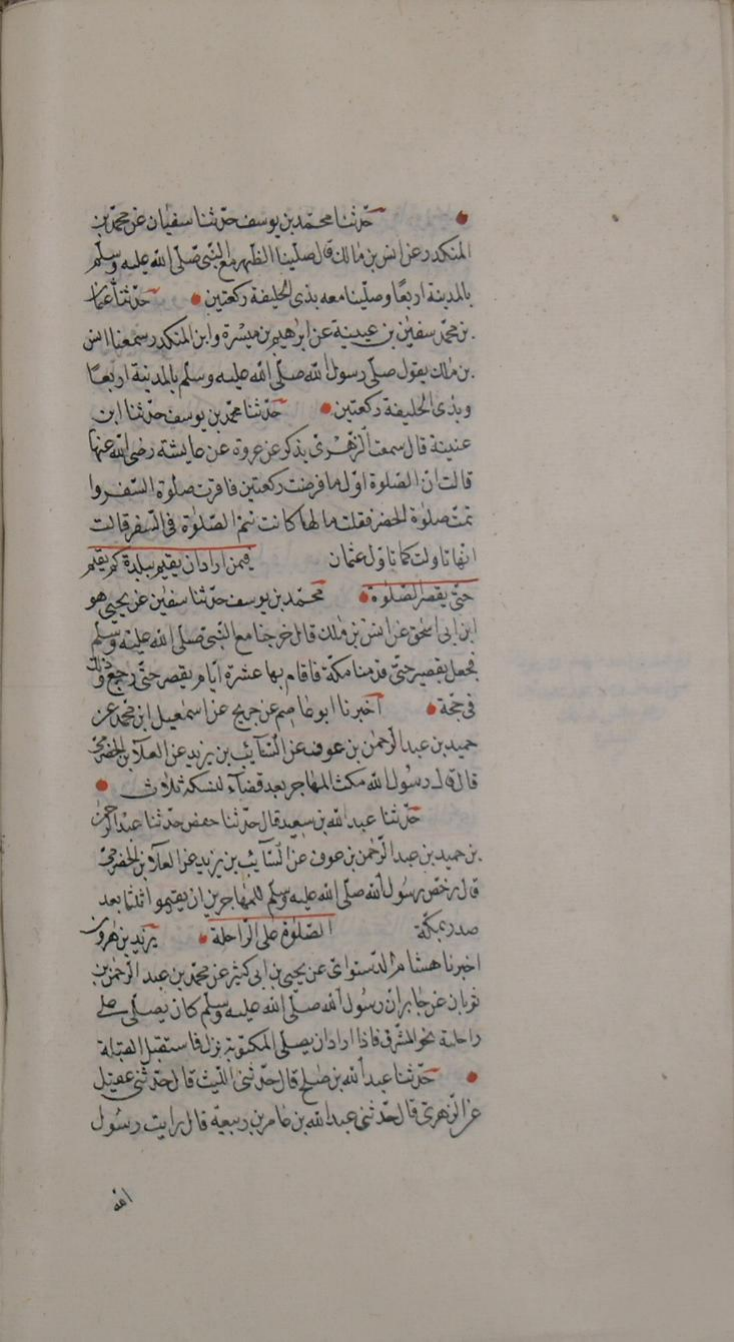 حدثنا محمد بن يوسف حدثنا سفيان عن محمد بن
المنكدر عن انس بن مالك قال صلينا الظهر مع النبي صلى الله عليه وسلم
بالمدينة اربعا وصلينا معه بذى الحليفة ركعتين حدثنا عثمان
بن محمد سفين بن عيينة عن ابرهيم بن ميسرة وابن المنكدر سمعنا انس
بن مالك يقول صلى رسول الله صلى الله عليه وسلم بالمدينة اربعا
وبذى الحليفة ركعتين حدثنا محمد بن يوسف حدثنا ابن
عيينة قال سمعت الزهرى يذكر عن عروة عن عايشة رضى الله عنها
قالت ان الصلوة اول ما فرضت ركعتين فاقرت صلوة السفر وا
تمت صلوة الحضر فقلت ما لها كانت تتم الصلوة فى السفر قالت
انها تاولت كما تاول عثمان فيمن اراد ان يقيم ببلدة كم يقيم
حتى يقصر الصلوة محمد بن يوسف حدثنا سفين عن يحيى هو
ابن ابى اسحق عن انس بن ملك قال خرجنا مع النبى صلى الله عليه وسلم
فجعل يقصر حتى قدمنا مكة فاقام بها عشرة ايام يقصر حتى رجع وذلك
فى حجة اخبرنا ابو عاصم عن جريج عن اسمعيل ابن محمد عن
حميد بن عبد الرحمن بن عوف عن السايب بن يزيد عن العلا بن الحضرمى
قال قال رسول الله مكث المهاجر بعد قضاء نسكه ثلاث
حدثنا عبد الله بن سعيد قال حدثنا حفص حدثنا عبد الرحمن
بن حميد بن عبد الرحمن بن عوف عن السايب بن يزيد عن العلا بن الحضرمى
قال رخص رسول الله صلى الله عليه وسلم للمهاجرين ان يقيموا ثلثا بعد
صدر بمكة الصلوة على الراحلة يزيد بن هرون
اخبرنا هشام الدستواى عن يحيى بن ابى كثير عن محمد بن عبد الرحمن بن
ثوبان عن جابر ان رسول الله صلى الله عليه وسلم كان يصلى على
راحلته نحو المشرق فاذا اراد ان يصلى المكتوبة نزل فاستقبل القبلة
حدثنا عبد الله بن صلح قال حدثنى الليث قال حدثنى عقيل
عن الزهرى قال حدثنى عبد الله بن عامر بن ربيعة قال رايت رسول
الله